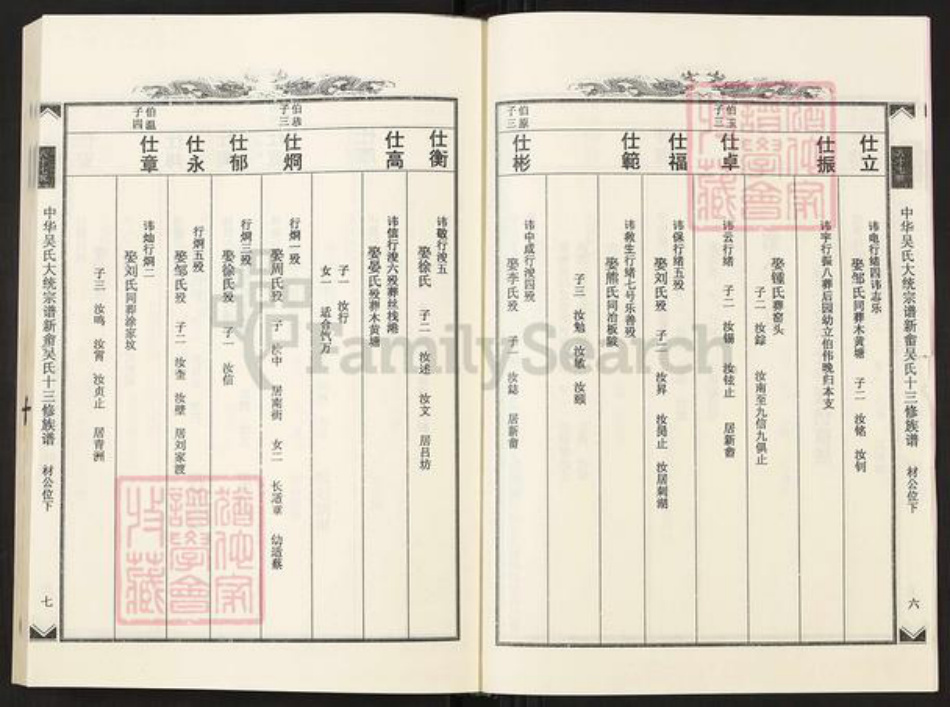 中华吴氏大统宗谱新畲吴氏十三修族谱 材公位下 六
仕立
讳电行绪四讳志乐
娶邹氏同葬木黄塘 子二 汝铭 汝钊
仕振
讳宇行振八葬后园幼立伯伟晚归本支
娶锺氏葬窑头
子二 汝錝 汝南至九信九俱止
伯玉
子三
仕卓
讳云行绪 子二 汝锡 汝铉止 居新畲
仕福
讳保行绪五殁
娶刘氏殁 子二 汝昇 汝昺止 汝居刺湖
仕範
讳救生行绪七号乐善殁
娶熊氏同治板陂
子三 汝勉 汝敏 汝颐
伯原
子三
仕彬
讳中成行浚四殁
娶李氏殁 子一 汝誌 居新畲
仕衡
讳敬行浚五
娶徐氏 子二 汝述 汝文 居吕坊
仕高
讳信行浚六殁葬丝栈港
娶晏氏殁葬木黄塘
子一 汝行
女一 适合饩万
伯恭
子三
仕炯
行炯一殁
娶周氏殁 子一 汝中 居南街 女二 长适章 幼适蔡
仕郁
行炯三殁
娶徐氏殁 子一 汝信
仕永
行炯五殁
娶邹氏殁 子二 汝奎 汝壁 居刘家渡
伯温
子四
仕章
讳灿行炯二
娶刘氏同葬涂家坟
子三 汝鸣 汝霄 汝贞止 居青洲
中华吴氏大统宗谱新畲吴氏十三修族谱 材公位下 七
FamilySearch